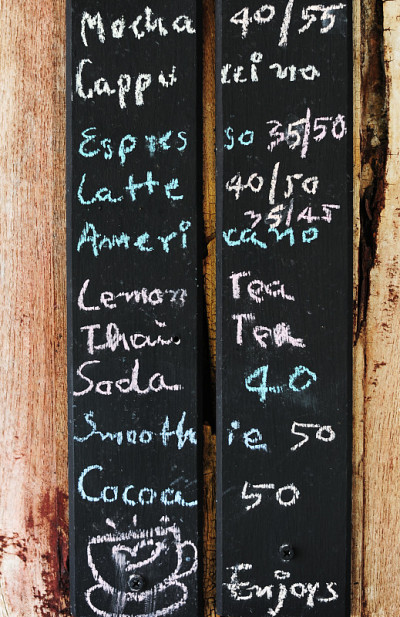 Mocha 40/55
Cappuccino
Espresso 35/50
Latte 40/50
35/45
Americano
Lemon Tea
Thai Tea
Soda 40
Smoothie 50
Cocoa 50
Enjoys